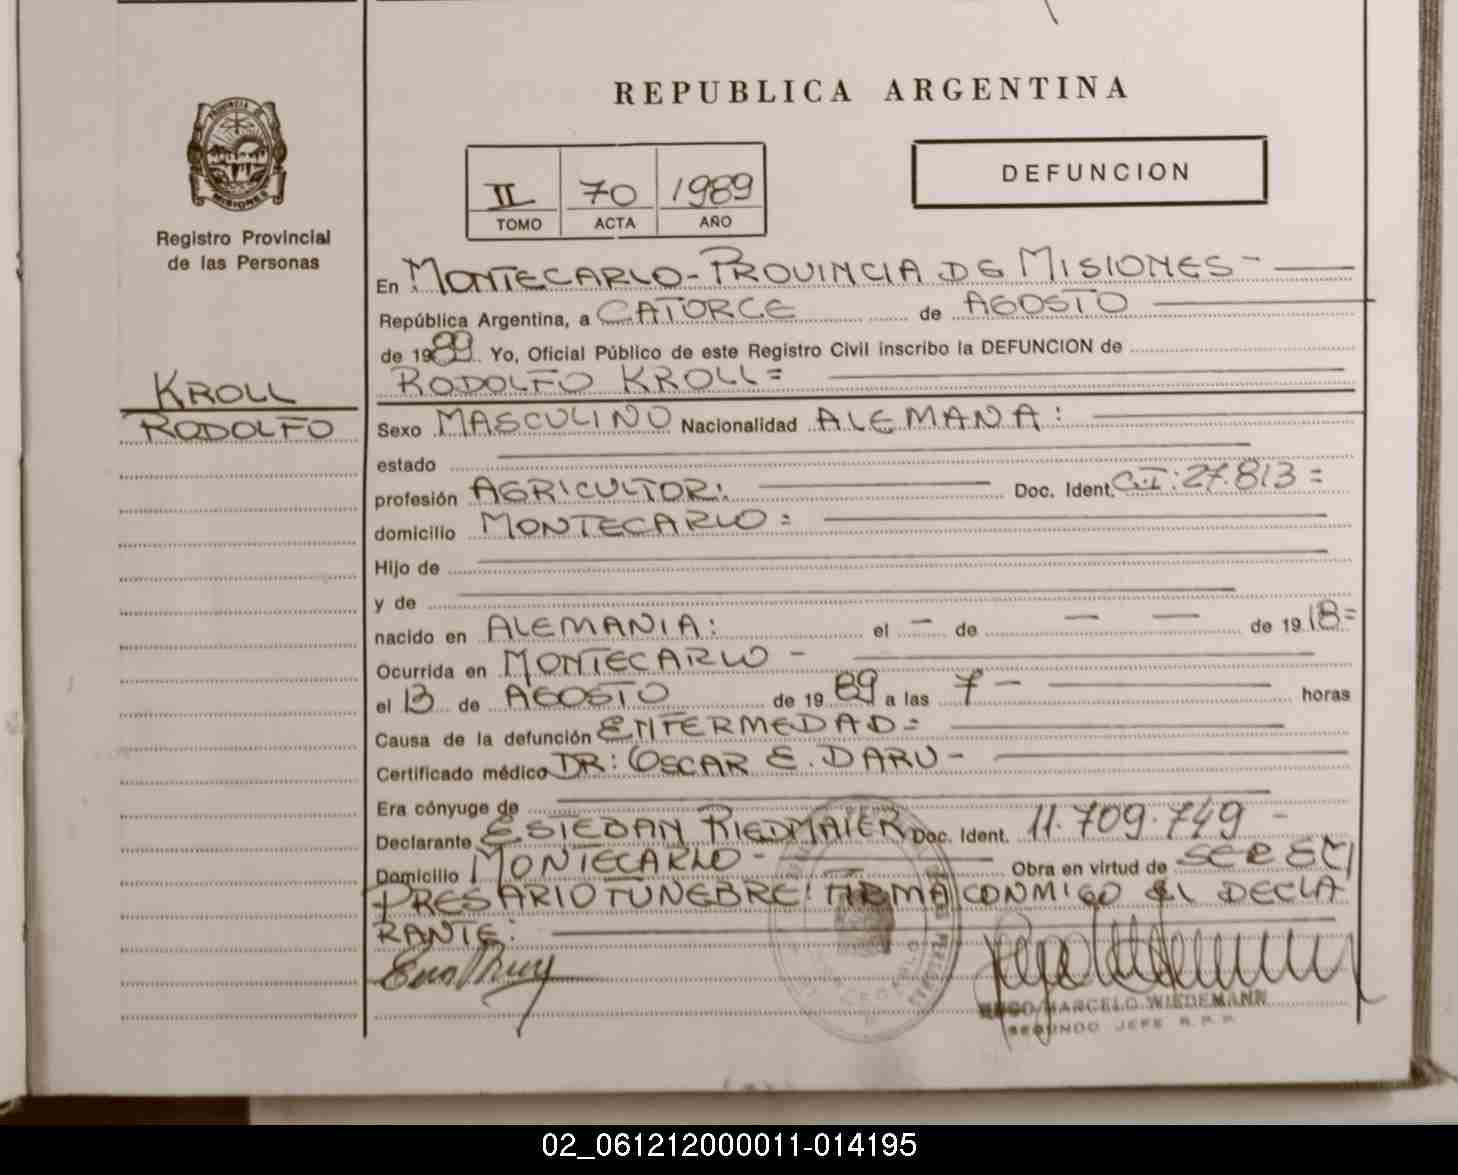 REPUBLICA ARGENTINA
PROVINCIA DE
MISIONES
Registro Provincial
de las Personas
II 70 1989
TOMO ACTA AÑO
DEFUNCION
En MONTECARLO-PROVINCIA DE MISIONES-
República Argentina, a CATORCE de AGOSTO
de 1989 Yo, Oficial Público de este Registro Civil inscribo la DEFUNCION de
RODOLFO KROLL=
KROLL
RODOLFO
Sexo MASCULINO Nacionalidad ALEMANA:
estado
profesión AGRICULTOR: Doc. Ident. C.I:27.813=
domicilio MONTECARLO=
Hijo de
y de
nacido en ALEMANIA: el - de - - de 1918=
Ocurrida en MONTECARLO -
el 13 de AGOSTO de 1989 a las 7 - horas
Causa de la defunción ENFERMEDAD=
Certificado médico DR: OSCAR E. DARU-
Era cónyuge de
Declarante ESTEBAN RIEDMAIER Doc. Ident. 11.709.749-
Domicilio MONTECARLO- Obra en virtud de SER EM
PRESARIO FUNEBRE: FIRMA CONMIGO EL DECLA
RANTE:
HUGO MARCELO WIEDEMANN
SEGUNDO JEFE R. P. P.
02_061212000011-014195